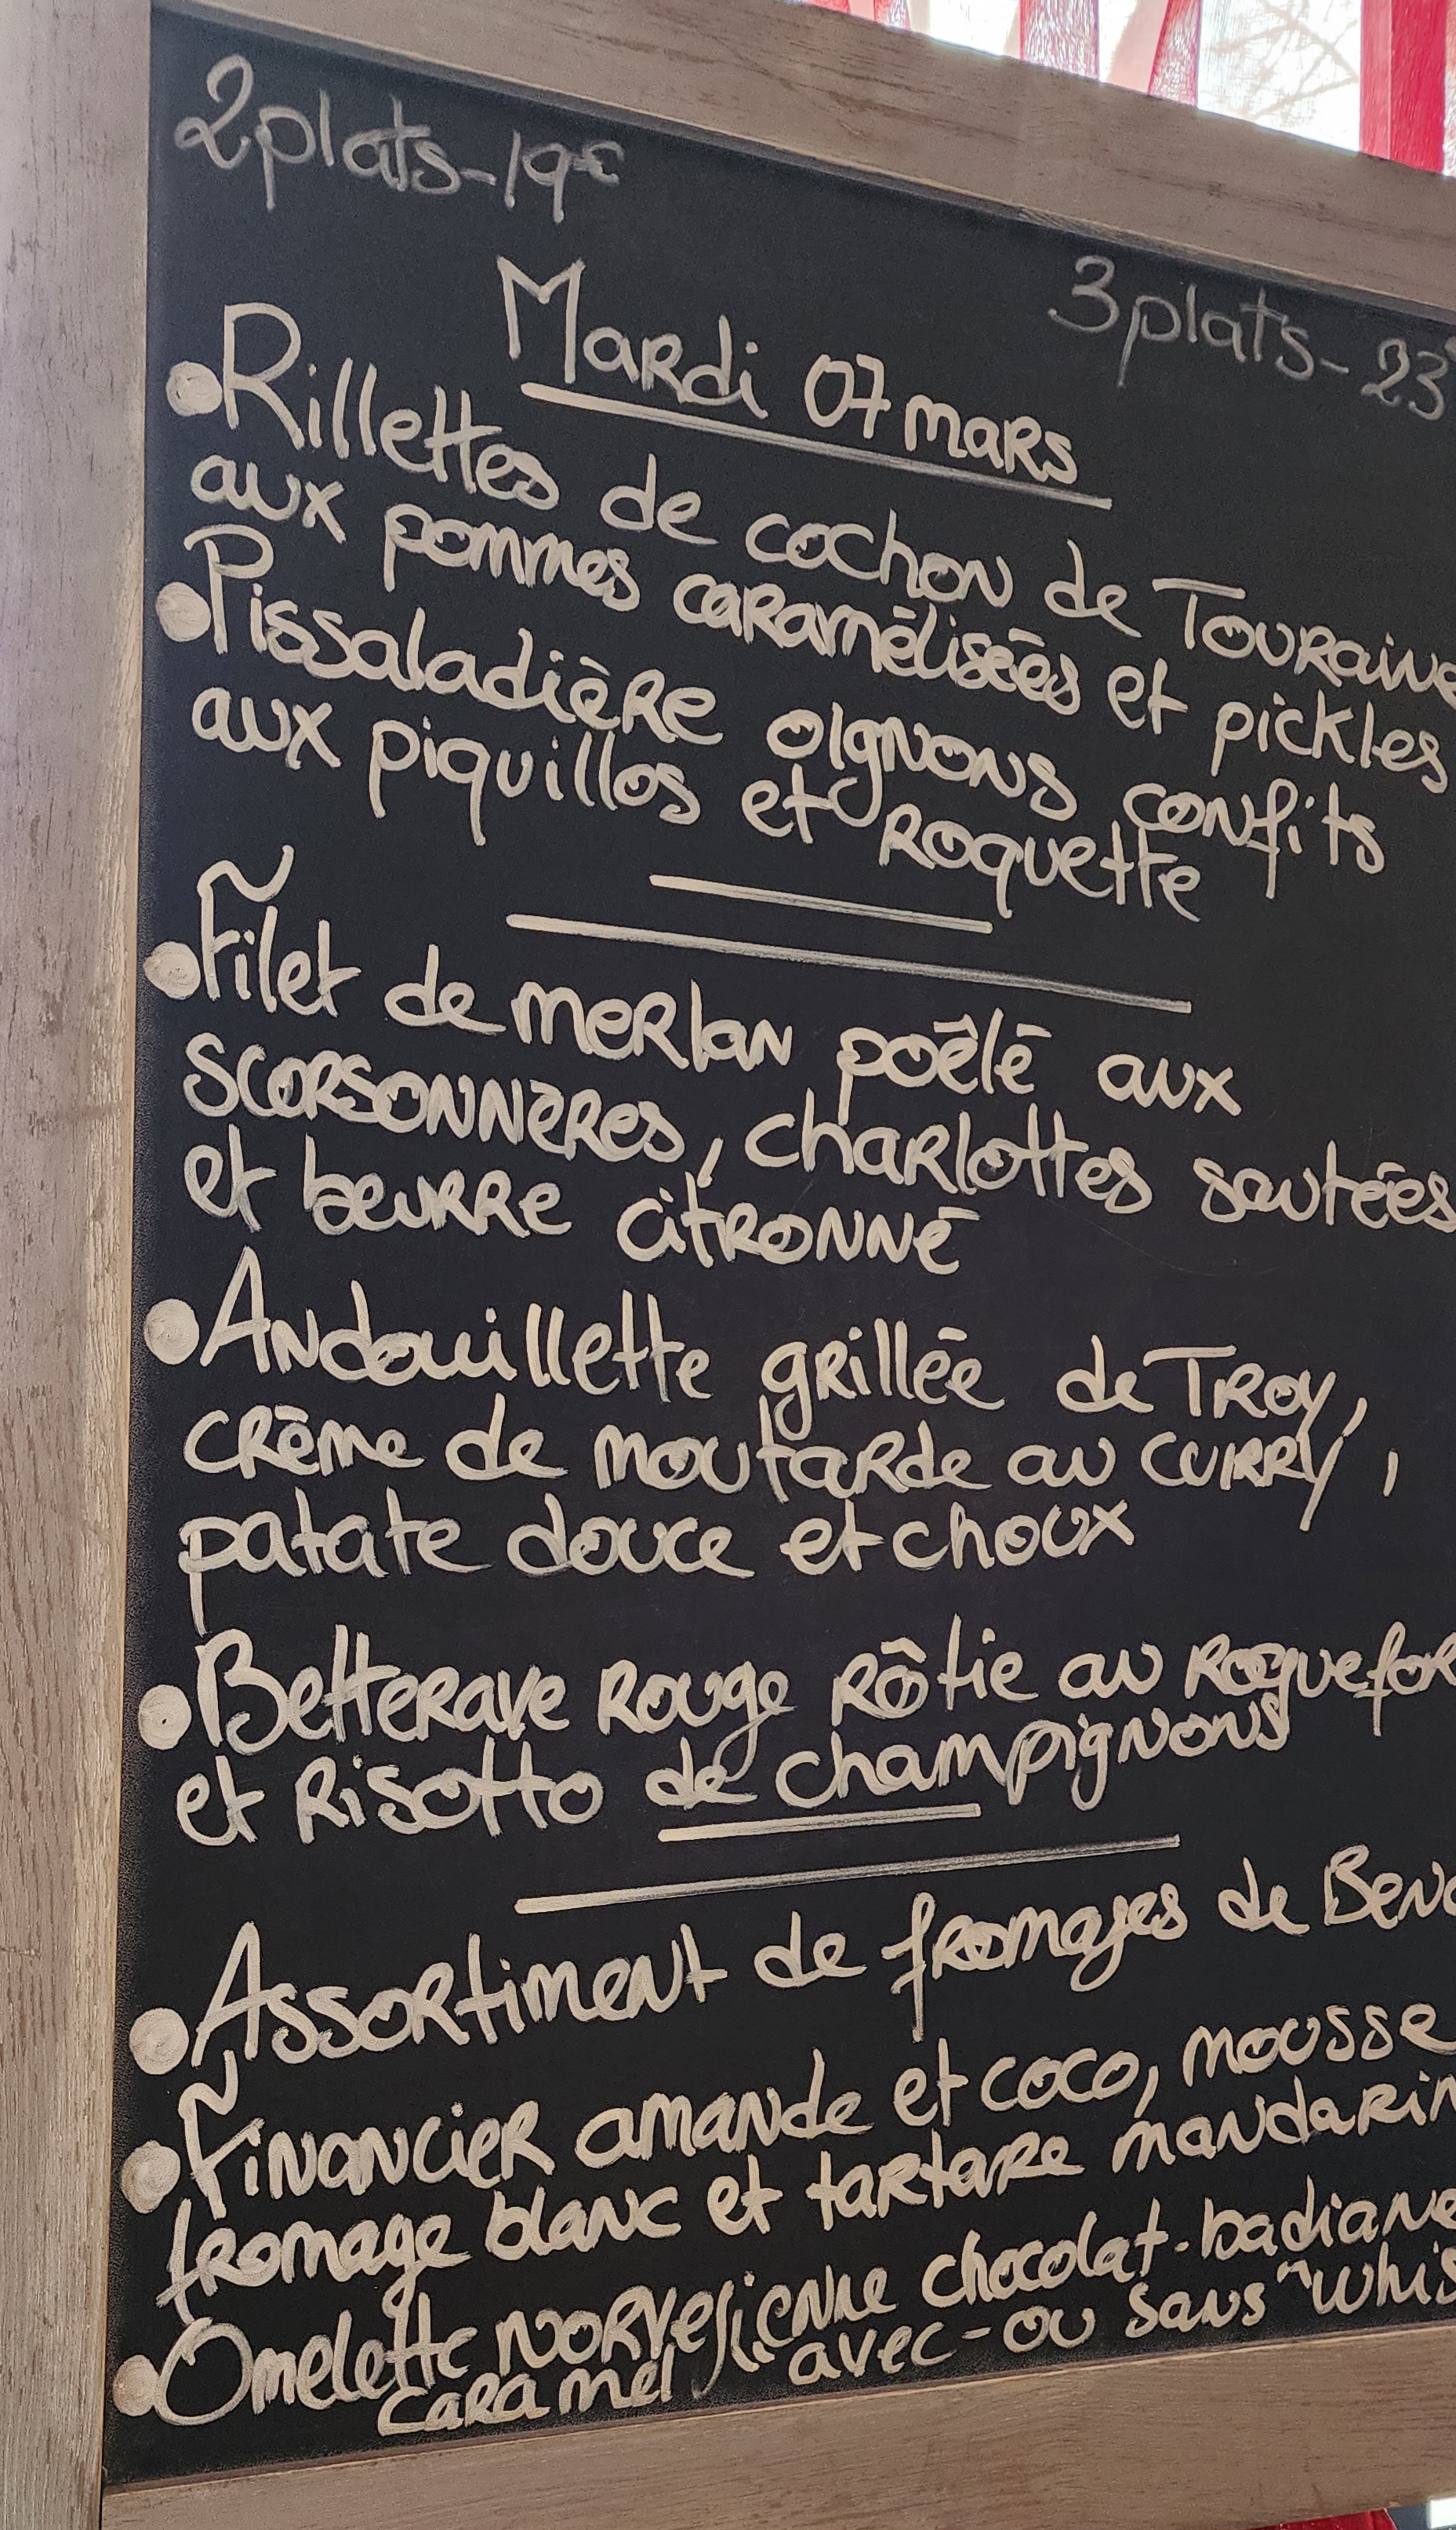 2 plats - 19€
3 plats - 23
Mardi 07 mars
• Rillettes de cochon de Touraine
aux pommes caramélisées et pickles
• Pissaladière oignons confits
aux piquillos et roquette
• Filet de merlan poêlé aux
scorsonnères, charlottes sautées
et beurre citronné
• Andouillette grillée de Troy,
crème de moutarde au curry,
patate douce et choux
• Betterave rouge rôtie au roquefor
et risotto de champignons
• Assortiment de fromages de
• Financier amande et coco, mousse
fromage blanc et tartare mandarin
• Omelette norvegienne chocolat-badiane
caramel "avec-ou sans" whis